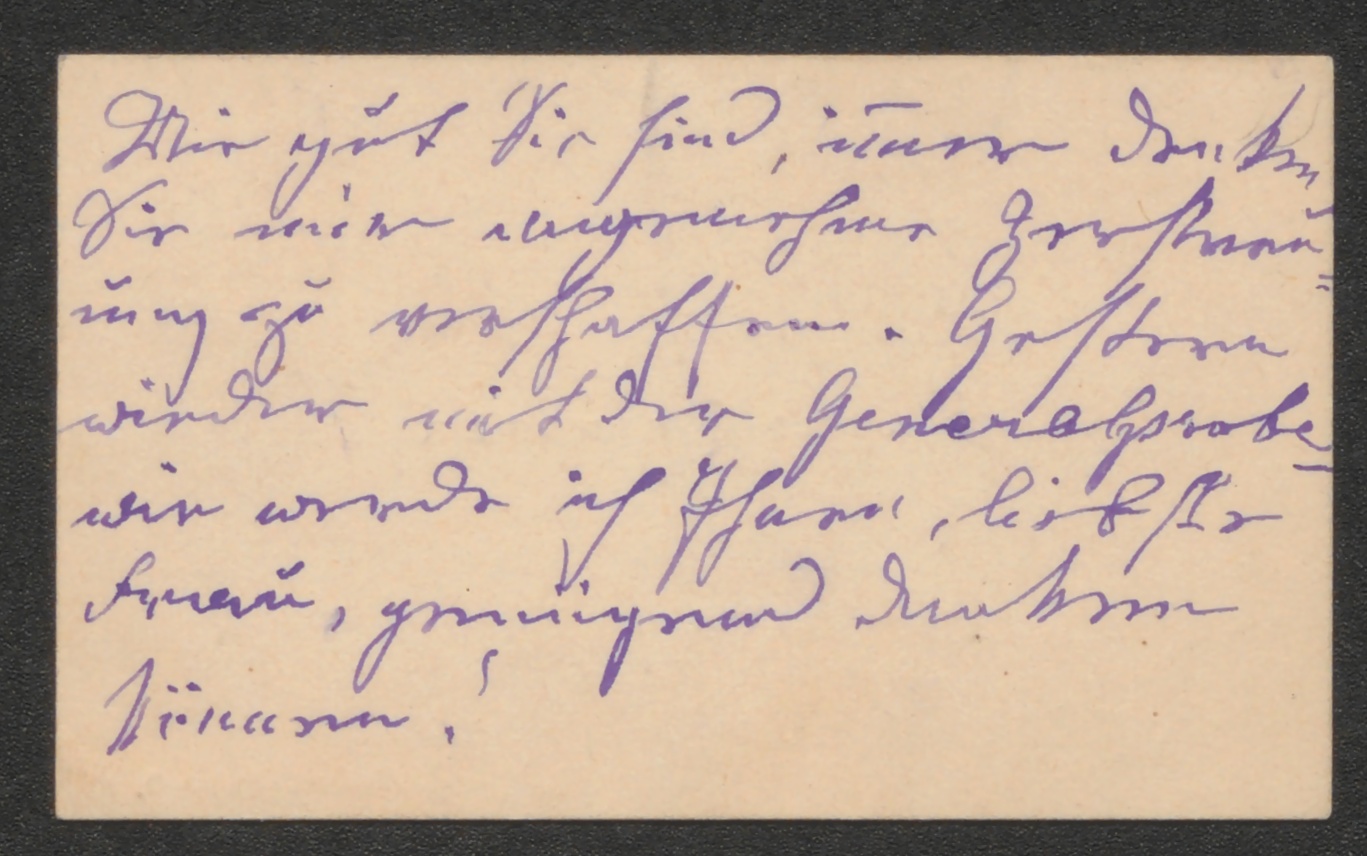 Wie gut Sie sind, im̅er denken
Sie mir angenehme Zerstreu-
ung zu verschaffen. Gestern
wieder mit der Generalprobe –
wie werde ich Ihnen, liebste
Frau, genügend danken
können!